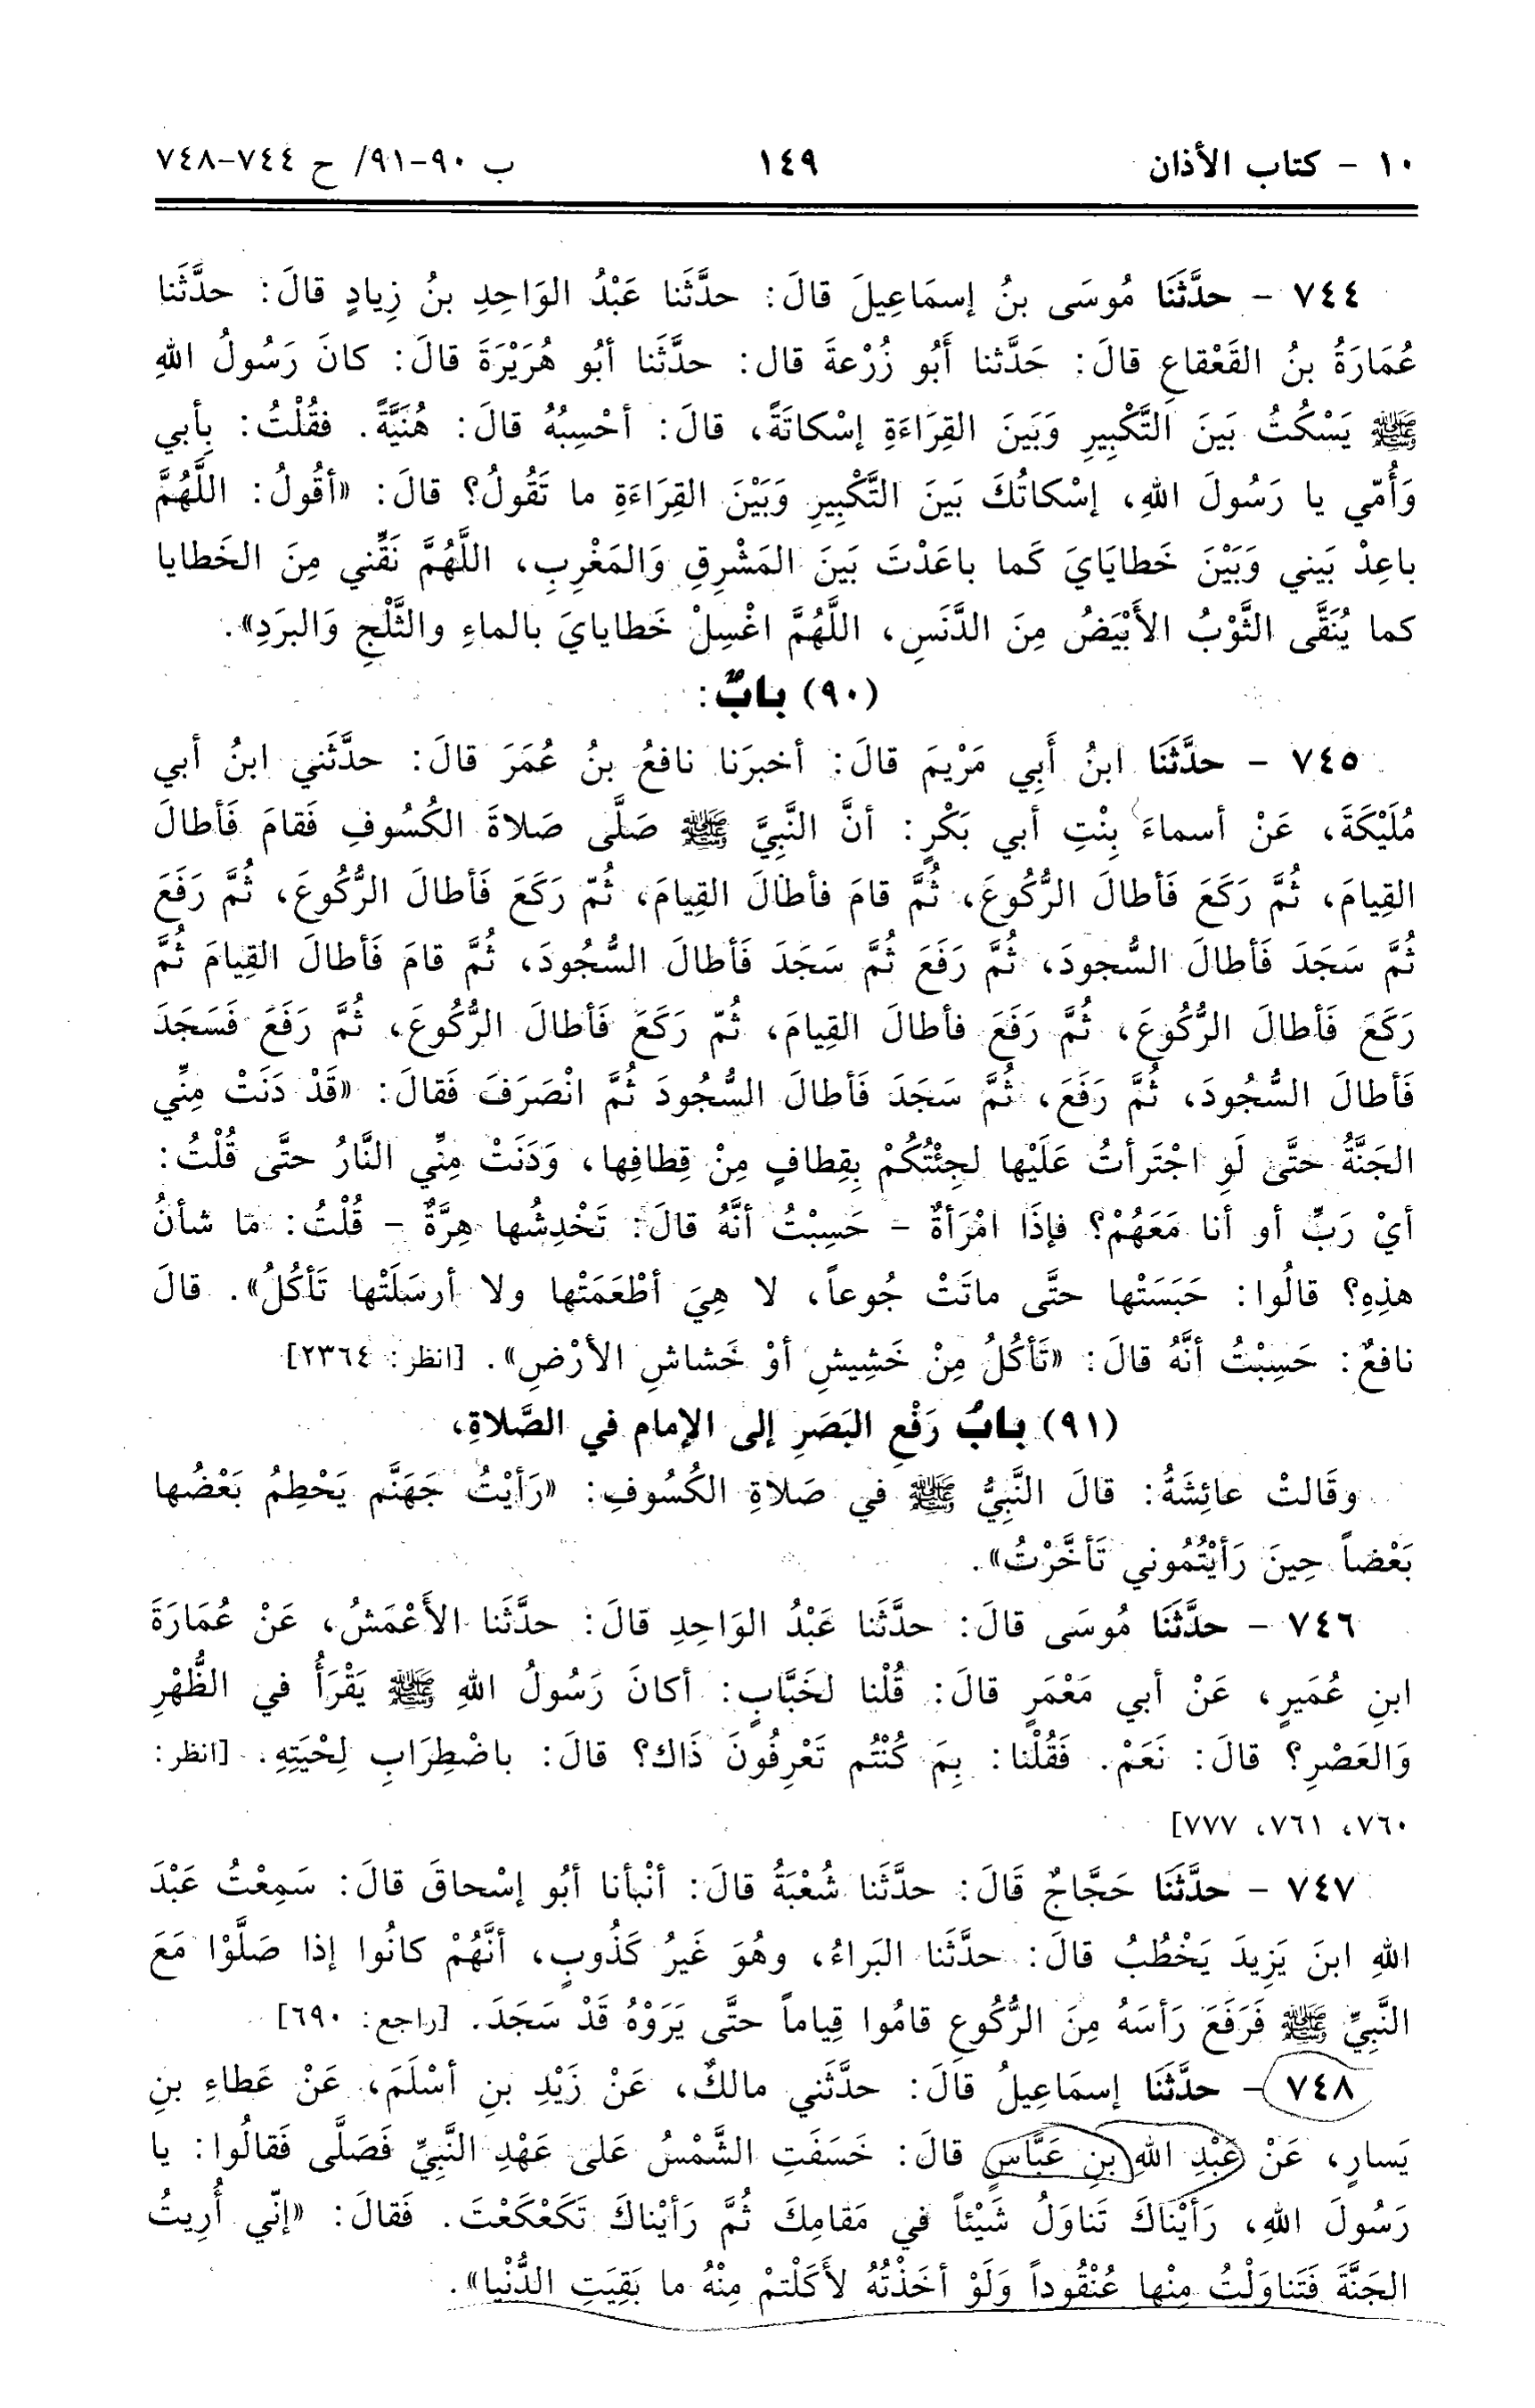 ١٠ - كتاب الأذان ١٤٩ ب ٩٠-٩١/ ح ٧٤٤-٧٤٨
٧٤٤ - حدَّثَنَا مُوسَى بنُ إسمَاعِيلَ قالَ: حدَّثَنا عَبْدُ الوَاحِدِ بنُ زِيادٍ قالَ: حدَّثَنا
عُمَارَةُ بنُ القَعْقاعِ قالَ: حَدَّثنا أَبُو زُرْعةَ قال: حدَّثَنا أبُو هُرَيْرَةَ قالَ: كانَ رَسُولُ اللهِ
ﷺ يَسْكُتُ بَينَ التَّكْبِيرِ وَبَينَ القِرَاءَةِ إسْكاتَةً، قالَ: أحْسِبُهُ قالَ: هُنَيَّةً. فقُلْتُ: بِأبي
وَأُمّي يا رَسُولَ اللهِ، إسْكاتُكَ بَينَ التَّكْبِيرِ وَبَيْنَ القِرَاءَةِ ما تَقُولُ؟ قالَ: «أقُولُ: اللَّهُمَّ
باعِدْ بَيني وَبَيْنَ خَطايَايَ كَما باعَدْتَ بَينَ المَشْرِقِ وَالمَغْرِبِ، اللَّهُمَّ نَقِّني مِنَ الخَطايا
كما يُنَقَّى الثَّوْبُ الأَبْيَضُ مِنَ الدَّنَسِ، اللَّهُمَّ اغْسِلْ خَطايايَ بالماءِ والثَّلْجِ وَالبرَدِ».
(٩٠) بابٌ:
٧٤٥ - حدَّثَنَا ابنُ أَبِي مَرْيمَ قالَ: أخبرَنا نافعُ بنُ عُمَرَ قالَ: حدَّثَني ابنُ أبي
مُلَيْكَةَ، عَنْ أسماءَ بِنْتِ أبي بَكْرٍ: أنَّ النَّبِيَّ ﷺ صَلَّى صَلاةَ الكُسُوفِ فَقامَ فَأطالَ
القِيامَ، ثُمَّ رَكَعَ فَأطالَ الرُّكُوعَ، ثُمَّ قامَ فأطالَ القِيامَ، ثُمّ رَكَعَ فَأطالَ الرُّكُوعَ، ثُمَّ رَفَعَ
ثُمَّ سَجَدَ فَأطالَ السُّجودَ، ثُمَّ رَفَعَ ثُمَّ سَجَدَ فَأطالَ السُّجُودَ، ثُمَّ قامَ فَأطالَ القِيامَ ثُمَّ
رَكَعَ فَأطالَ الرُّكُوعَ، ثُمَّ رَفَعَ فأطالَ القِيامَ، ثُمّ رَكَعَ فَأطالَ الرُّكُوعَ، ثُمَّ رَفَعَ فَسَجَدَ
فَأطالَ السُّجُودَ، ثُمَّ رَفَعَ، ثُمَّ سَجَدَ فَأطالَ السُّجُودَ ثُمَّ انْصَرَفَ فَقالَ: «قَدْ دَنَتْ مِنِّي
الجَنَّةُ حتَّى لَوِ اجْتَرأتُ عَلَيْها لجِئْتُكُمْ بِقِطافٍ مِنْ قِطافِها، وَدَنَتْ مِنِّي النَّارُ حتَّى قُلْتُ:
أيْ رَبِّ أو أنا مَعَهُمْ؟ فإذَا امْرَأةٌ - حَسِبْتُ أنَّهُ قالَ: تَخْدِشُها هِرَّةٌ - قُلْتُ: مَا شأنُ
هذِهِ؟ قالُوا: حَبَسَتْها حتَّى ماتَتْ جُوعاً، لا هِيَ أطْعَمَتْها ولا أرسَلَتْها تَأكُلُ». قالَ
نافعٌ: حَسِبْتُ أنَّهُ قالَ: «تَأكُلُ مِنْ خَشِيشِ أوْ خَشاشِ الأرْضِ». [انظر: ٢٣٦٤]
(٩١) بابُ رَفْعِ البَصَرِ إلى الإمام في الصَّلاةِ،
وقَالتْ عائِشَةُ: قالَ النَّبِيُّ ﷺ في صَلاةِ الكُسُوفِ: «رَأيْتُ جَهَنَّم يَحْطِمُ بَعْضُها
بَعْضاً حِينَ رَأيْتُمُوني تَأخَّرْتُ».
٧٤٦ - حدَّثَنَا مُوسَى قالَ: حدَّثَنا عَبْدُ الوَاحِدِ قالَ: حدَّثَنا الأَعْمَشُ، عَنْ عُمَارَةَ
ابنِ عُمَيرٍ، عَنْ أبي مَعْمَرٍ قالَ: قُلْنا لخَبَّابٍ: أكانَ رَسُولُ اللهِ ﷺ يَقْرَأُ في الظُّهْرِ
وَالعَصْرِ؟ قالَ: نَعَمْ. فَقُلْنا: بِمَ كُنْتُم تَعْرِفُونَ ذَاك؟ قالَ: باضْطِرَابِ لِحْيَتِهِ. [انظر:
٧٦٠، ٧٦١، ٧٧٧]
٧٤٧ - حدَّثَنَا حَجَّاجٌ قَالَ: حدَّثَنا شُعْبَةُ قالَ: أنْبأنا أبُو إسْحاقَ قالَ: سَمِعْتُ عَبْدَ
اللهِ ابنَ يَزِيدَ يَخْطُبُ قالَ: حدَّثَنا البَراءُ، وهُوَ غَيرُ كَذُوبٍ، أنَّهُمْ كانُوا إذا صَلَّوْا مَعَ
النَّبِيِّ ﷺ فَرَفَعَ رَأسَهُ مِنَ الرُّكُوعِ قامُوا قِياماً حتَّى يَرَوْهُ قَدْ سَجَدَ. [راجع: ٦٩٠]
٧٤٨ - حدَّثَنَا إسمَاعِيلُ قالَ: حدَّثَني مالكٌ، عَنْ زَيْدِ بنِ أسْلَمَ، عَنْ عَطاءِ بنِ
يَسارٍ، عَنْ عَبْدِ اللهِ بنِ عَبَّاسٍ قالَ: خَسَفَتِ الشَّمْسُ عَلى عَهْدِ النَّبِيِّ فَصَلَّى فَقالُوا: يا
رَسُولَ اللهِ، رَأيْنَاكَ تَناوَلُ شَيْئاً في مَقامِكَ ثُمَّ رَأيْناكَ تَكَعْكَعْتَ. فَقالَ: «إنّي أُرِيتُ
الجَنَّةَ فَتَناوَلْتُ مِنْها عُنْقُوداً وَلَوْ أخَذْتُهُ لأَكَلْتمْ مِنْهُ ما بَقِيَتِ الدُّنْيا».